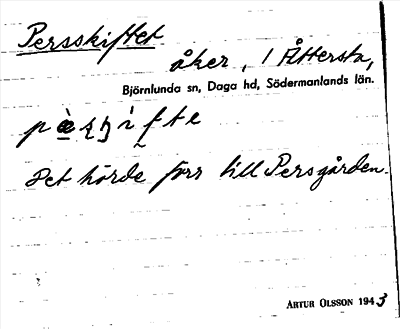 Persskiftet
åker, i Åttersta,
Björnlunda sn, Daga hd, Södermanlands län.
Det hörde förr till Persgården.
ARTUR OLSSON 1943